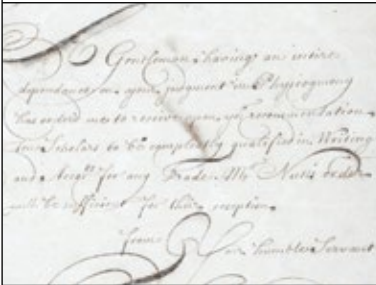 A Gentleman having an intire
dependance on your judgment in Physiognomy
has ordred me to receive upon yr. recommendation
four Scholars to be compleatly qualified in Writing
and Accpts for any Trade Mr.
will be sufficient for their reception
from Yor. humble Servant